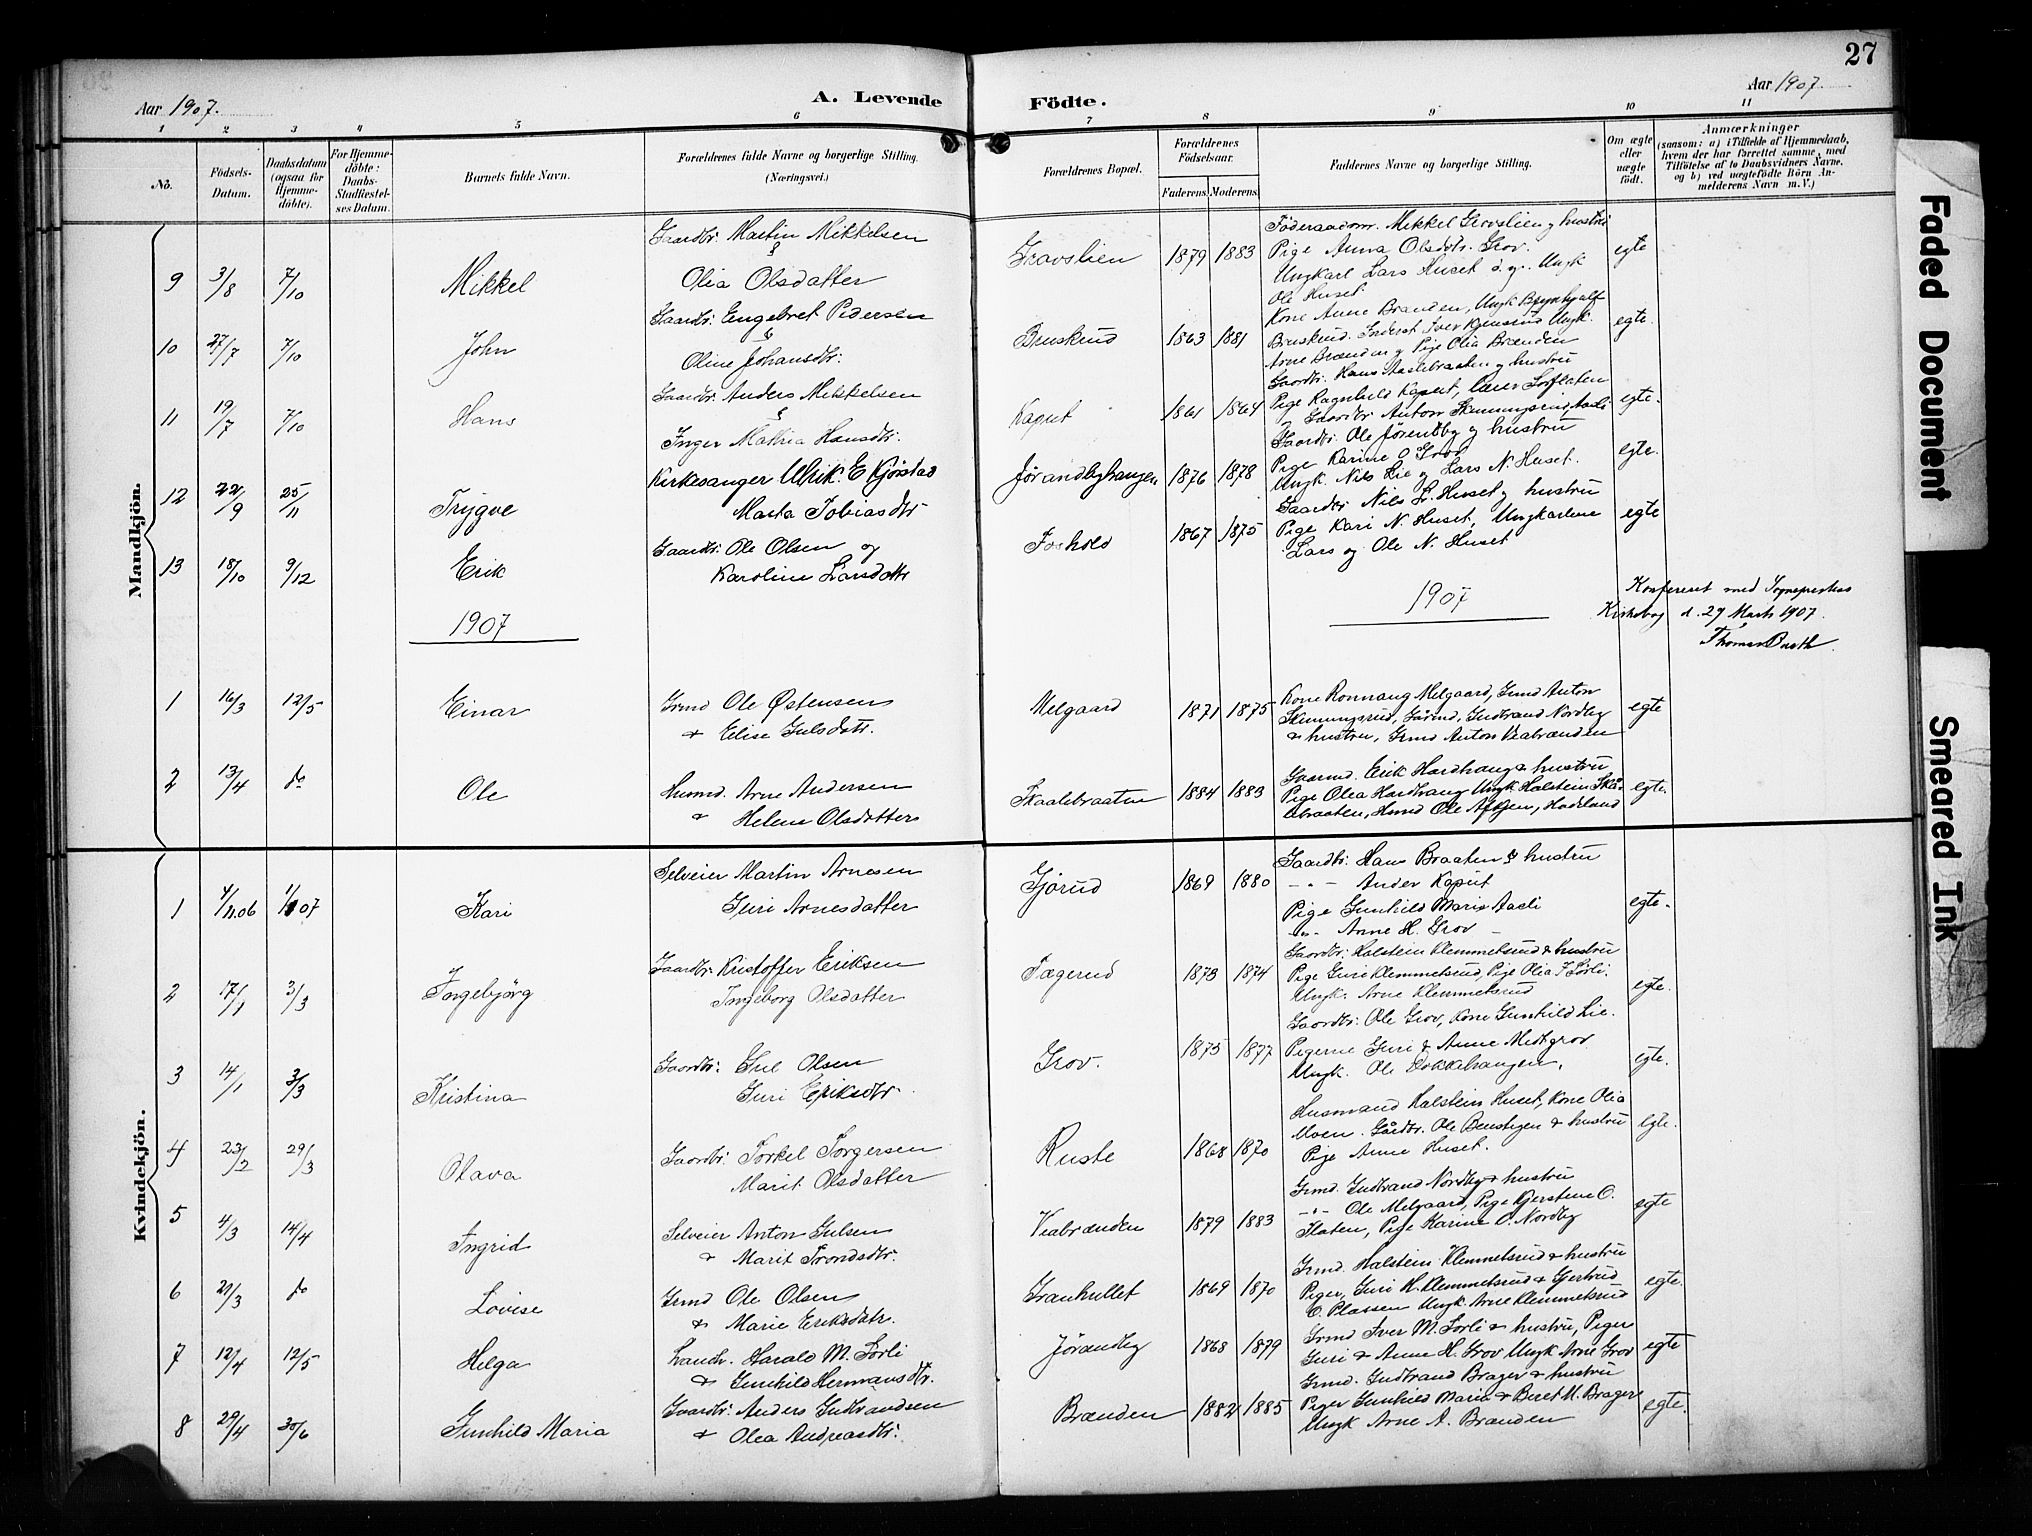 27
Aar 1907.
A. Levende
Födte.
Aar 1907.
1 2 3 4 5 6 7 8 9 10 11
No.
Födsels-Datum.
Daabsdatum (ogsaa for Hjemme-döbte).
For Hjemme-döbte: Daabs-Stadfæstel-ses Datum.
Barnets fulde Navn.
Forældrenes fulde Navne og borgerlige Stilling. (Næringsvei.)
Forældrenes Bopæl.
Forældrenes Födselsaar.
Faderens. Moderens.
Faddernes Navne og borgerlige Stilling.
Om ægte eller uægte födt.
Anmærkninger
(saasom: a) i Tilfælde af Hjemmedaab, hvem der har forrettet samme, med Tilföielse af to Daabsvidners Navne, og b) ved uægtefödte Börn An-melderens Navn m. V.)
Mandkjön.
9 3/8 7/10 Mikkel
Gaardbr. Martin Mikkelsen
Olia Olsdatter
Gravslien 1879 1883
Föderaadsm. Mikkel Grovslien og hustru
Pige Anna Olsdtr. Grov.
Ungkarl Lars Huset
Ole Huset
egte
10 27/7 7/10 John
Gaardbr: Engebret Pedersen
&
Oline Johansdtr:
Bruskrud 1863 1881
Kone Anne Brænden, Ungk
Arne Brænden og Pige Olia Brænden
egte.
11 19/7 7/10 Hans
Gaardbr Anders Mikkelsen
&
Inger Mathia Hansdtr.
Kaput 1861 1864
Gaardbr. Hans Aaslebraaten og hustru
Pige Ragnhild Kaput,
egte.
12 22/9 25/11 Trygve
Kirkesanger Ulrik E Kjörstad
Marta Tobiasdtr
Jörandbyhaugen 1876 1878
Gaardbr. Ole Jörandby og hustru
Pige Karine O Grov
Ungk. Nils Lie og Lars N. Huset.
egte.
13 18/10 9/12 Erik
Gaardbr: Ole Olsen og
Karoline Larsdatter
Foshold 1867 1875
Gaardbr Nils L. Huset og hustru
Pige Kari N. Huset, Ungkarlene
Lars og Ole N. Huset
egte
1907
1907
Konfereret med Sognepresten
d. 27 Marts 1907.
Thomas
1 16/3 12/5 Einar
Grmd Ole Østensen
& Elise Gulsdtr.
Melgaard 1871 1875
Kone Ronnaug Melgaard, Grmd Anton
Skinningsrud, Gårmd. Gudbrand Nordby
& hustru, Grmd Anton Viabrænden
egte
2 13/4 do Ole
Husmd. Arne Andersen
& Helene Olsdatter
Skaalebraaten 1884 1883
Gaarmd. Erik Hardhaug & hustru
Pige Olea Hardhaug Ungk Halstein Skå-
lebraaten, Husmd Ole
egte.
Kvindekjön.
1 07 Kari
Selveier Martin Arnesen
Guri Arnesdatter
Gjörud 1869 1880
Gaardbr: Hans Braaten & hustru
- " - Ander Kaput
Pige Gunhild Marie Aasli
- " - Anne H. Grov
egte.
2 17/1 3/3 Ingebjörg
Gaardbr: Kristoffer Eriksen
Ingeborg Olsdatter
Tægerud 1873 1874
Gaardbr: Halstein Klemmetsrud & hustru
Pige Guri Klemmetsrud, Pige Olia I Sörli.
Ungk. Arne Klemmetsrud
egte.
3 14/1 3/3 Kristina
Gaardbr: Gul Olsen
Guri Eriksdtr.
Grov. 1875 1877
Gaardbr: Ole Grov, Kone Gunhild Lie.
Pigerne Guri & Anne Midtgrov
Ungk. Ole Dokkehaugen.
egte.
4 23/2 29/3 Olava
Gaardbr. Torkel Torgersen
Marit Olsdatter
Ruste 1868 1870
Husmand Halstein Huset, Kone Olia
Moen. Gårdbr. Ole Benstigen & hustru
Pige Anne Huset.
egte.
5 4/3 14/4 Ingrid
Selveier Anton Gulsen
& Marit Trondsdtr.
Viabrænden 1879 1883
Grmd. Gudbrand Nordby & hustru
- " - Ole Melgaard, Pige Kjerstine O.
Flaten, Pige Karine O. Nordby
egte
6 21/3 do Lovise
Grmd Ole Olsen
& Marie Eriksdatr.
Granhullet 1869 1870
Grmd. Halstein Klemmetsrud & hustru
Piger, Guri H. Klemmetsrud & Gertrud
E. Plassen Ungk. Arne Klemmetsrud
egte.
7 12/4 12/5 Helga
Landh. Harald M. Sörli
& Gunhild Hermansdtr.
Jörandby 1868 1879
Grmd Iver M. Sörli & hustru, Piger
Guri & Anne H. Grov Ungk Arne Grov
egte
8 29/4 30/6 Gunhild Maria
Gaardbr: Anders Gudbrandsen
& Olea Andreasdtr:
Brænden 1882 1885
Grmd. Gudbrand Brager & hustru
Piger Gunhild Maria & Beret M. Brager
Ungk Arne A. Brænden
egte.
Faded Document
Smeared Ink